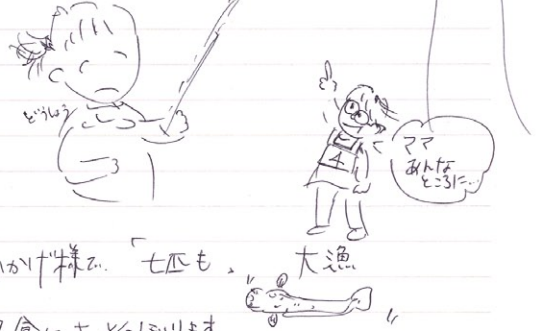 どうしよう
4
ママ
あんな
ところに…
かげ様で、「七匹も」 大漁